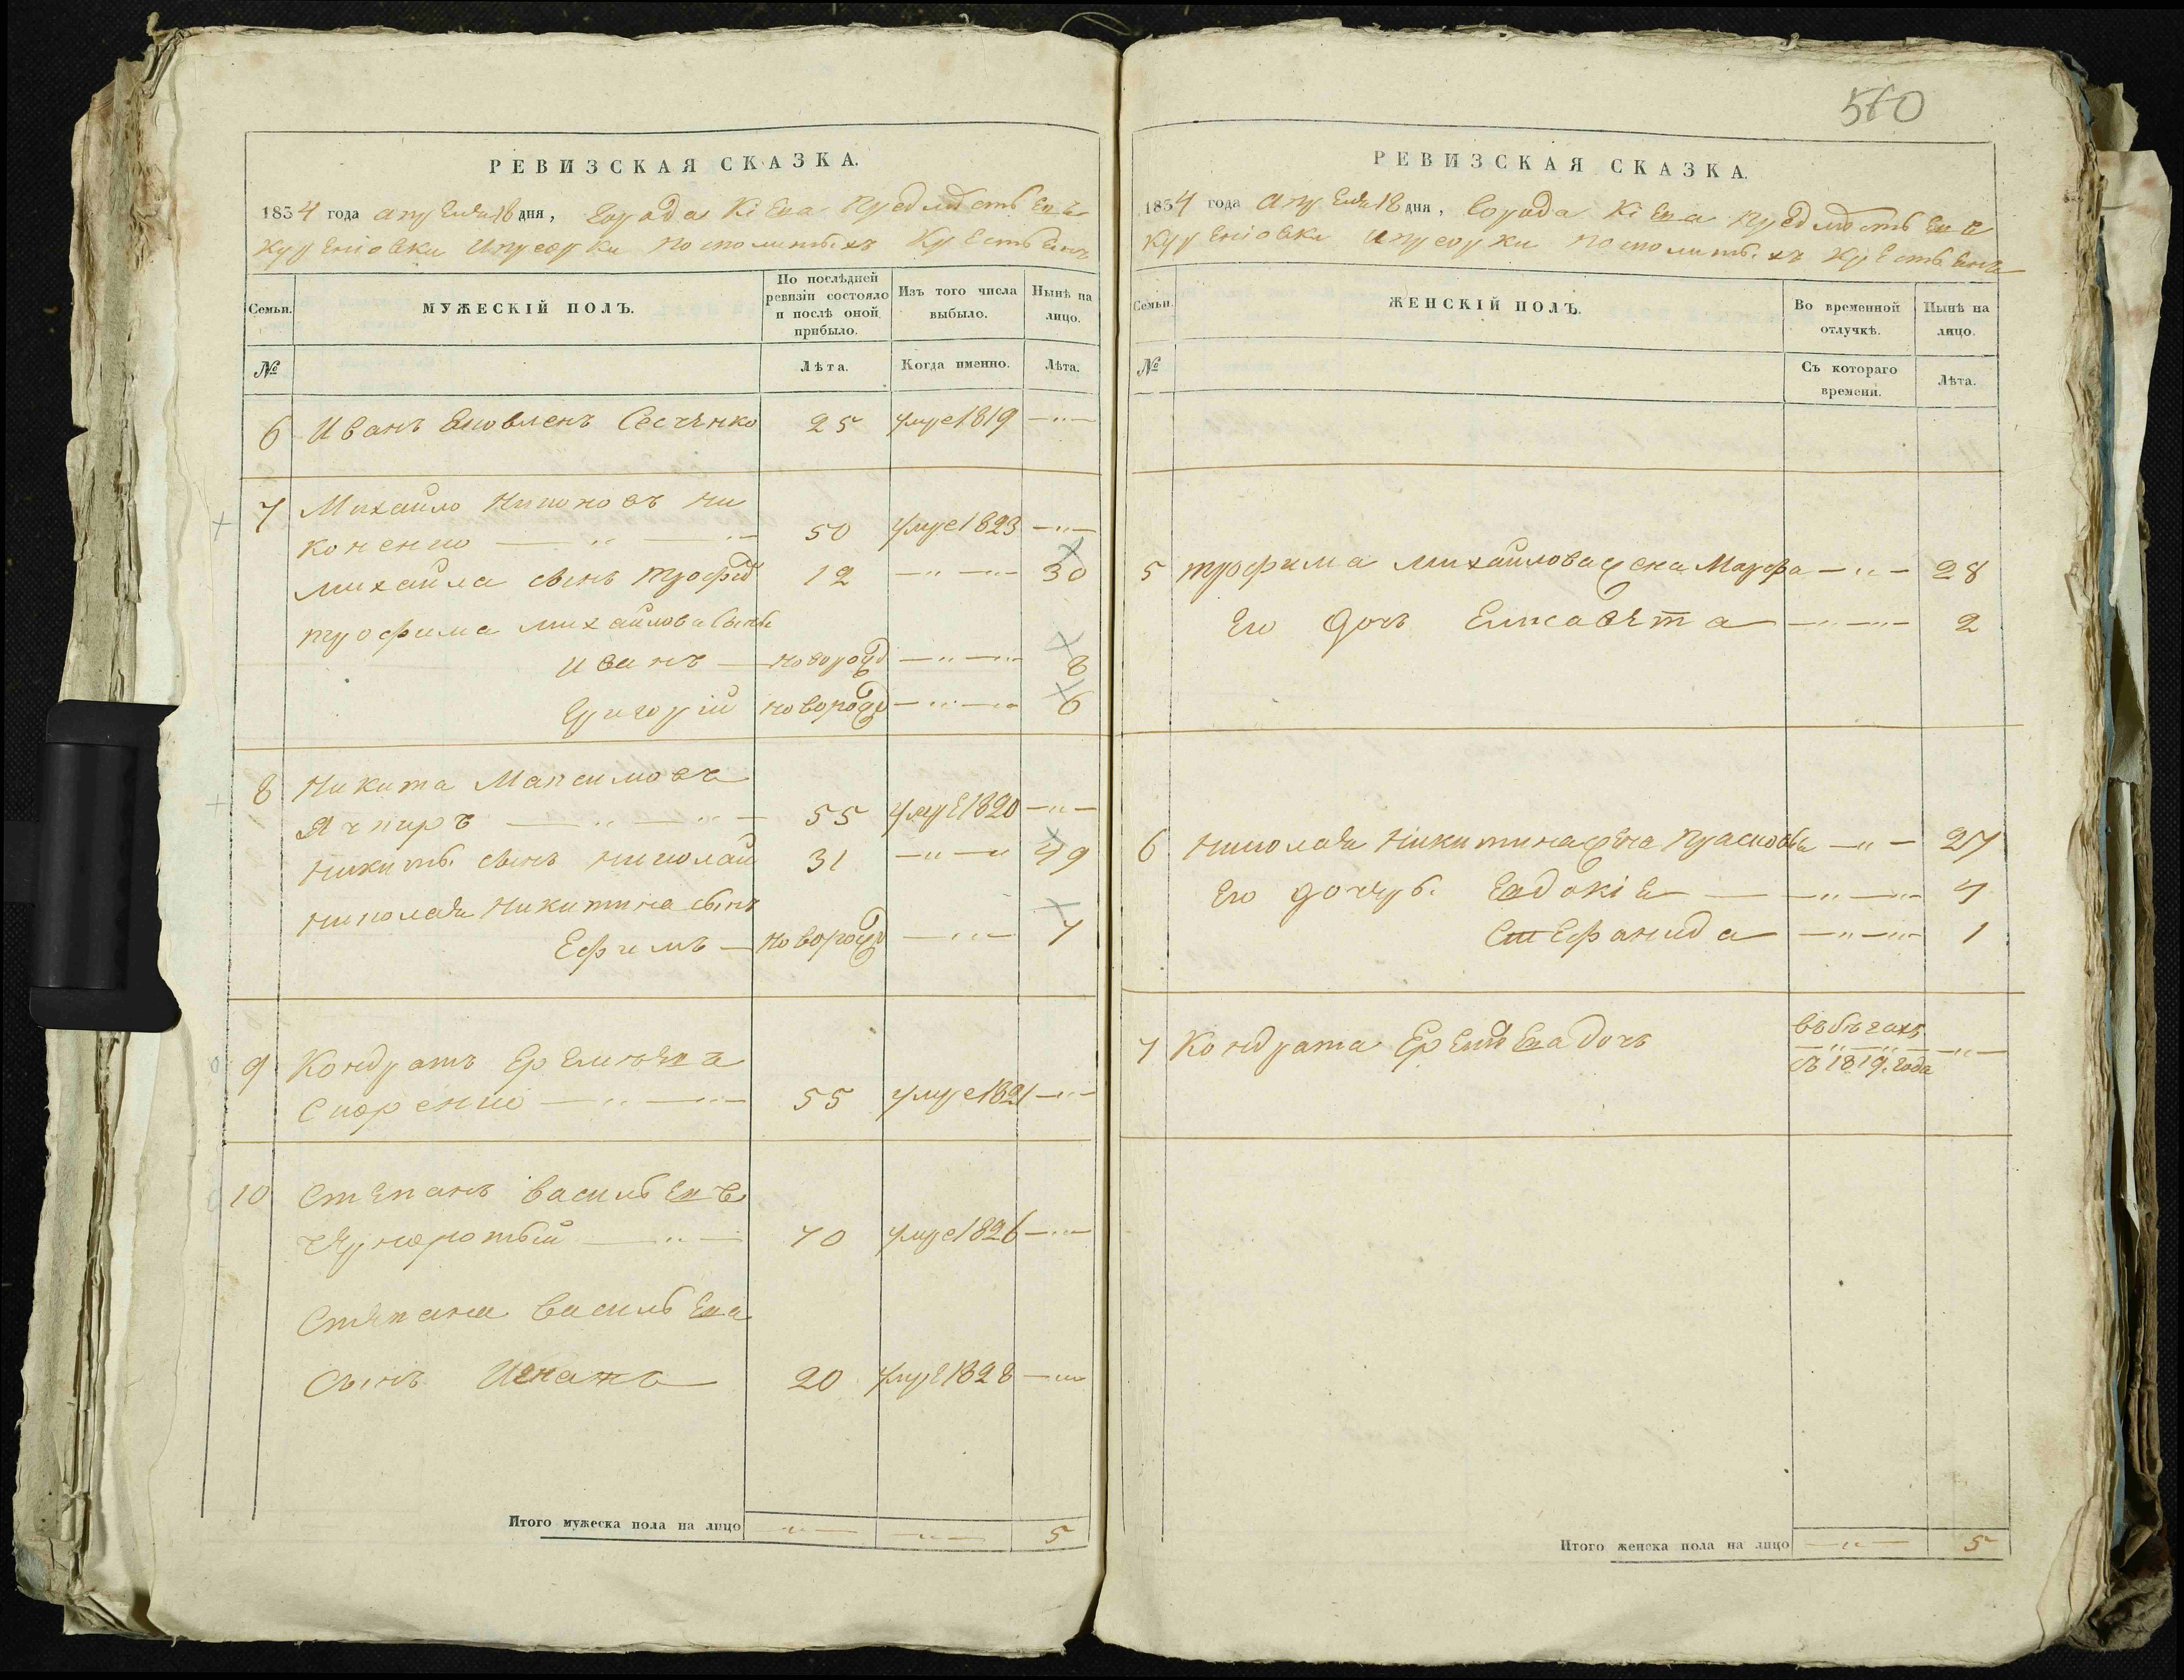 РЕВИЗСКАЯ СКАЗКА.
1834 года апреля 18 дня, города Кіева предмѣстьевъ
Куреніовки и Пріорки посполитыхъ крестьянъ
Семьи. МУЖЕСКІЙ ПОЛЪ. По послѣдней ревизіи состояло и послѣ оной прибыло. Изъ того числа выбыло. Нынѣ на лицо.
№ Лѣта. Когда именно. Лѣта.
6 Иванъ Яковлевъ 25 умре 1819 —"—
7 Михайло Никоновъ Ни
коненко —"— 50 умре 1823 —"—
Михайла сынъ Трофимъ 12 —"— 30
Трофима Михайлова сынъ
Иванъ — новорожд —"— 8
Григорій новорожд —"— 6
8 Никита Максимовъ
—"— 55 умре 1820 —"—
Никиты сынъ Николай 31 —"— 49
Николая Никитина сынъ
Ефимъ — новорожд —"— 7
9 Кондратъ Еремѣевъ
—"— 55 умре 1821 —"—
10 Степанъ Васильевъ
—"— 70 умре 1826 —"—
Степана Васильева
сынъ Игнатъ 20 умре 1828 —"—
Итого мужеска пола на лицо —"— —"— 5
560
РЕВИЗСКАЯ СКАЗКА.
1834 года апреля 18 дня, города Кіева предмѣстьевъ
Куреніовки и Пріорки посполитыхъ крестьянъ
Семьи. ЖЕНСКІЙ ПОЛЪ. Во временной отлучкѣ. Нынѣ на лицо.
№ Съ котораго времени. Лѣта.
5 Трофима Михайлова жена Марфа —"— 28
Его дочь Елисавета —"— 2
6 Николая Никитина жена Прасковья —"— 27
Его дочери Евдокія —"— 4
Стефанида —"— 1
7 Кондрата Еремѣева дочь въ бѣгахъ
съ 1819 года —"—
Итого женска пола на лицо —"— 5